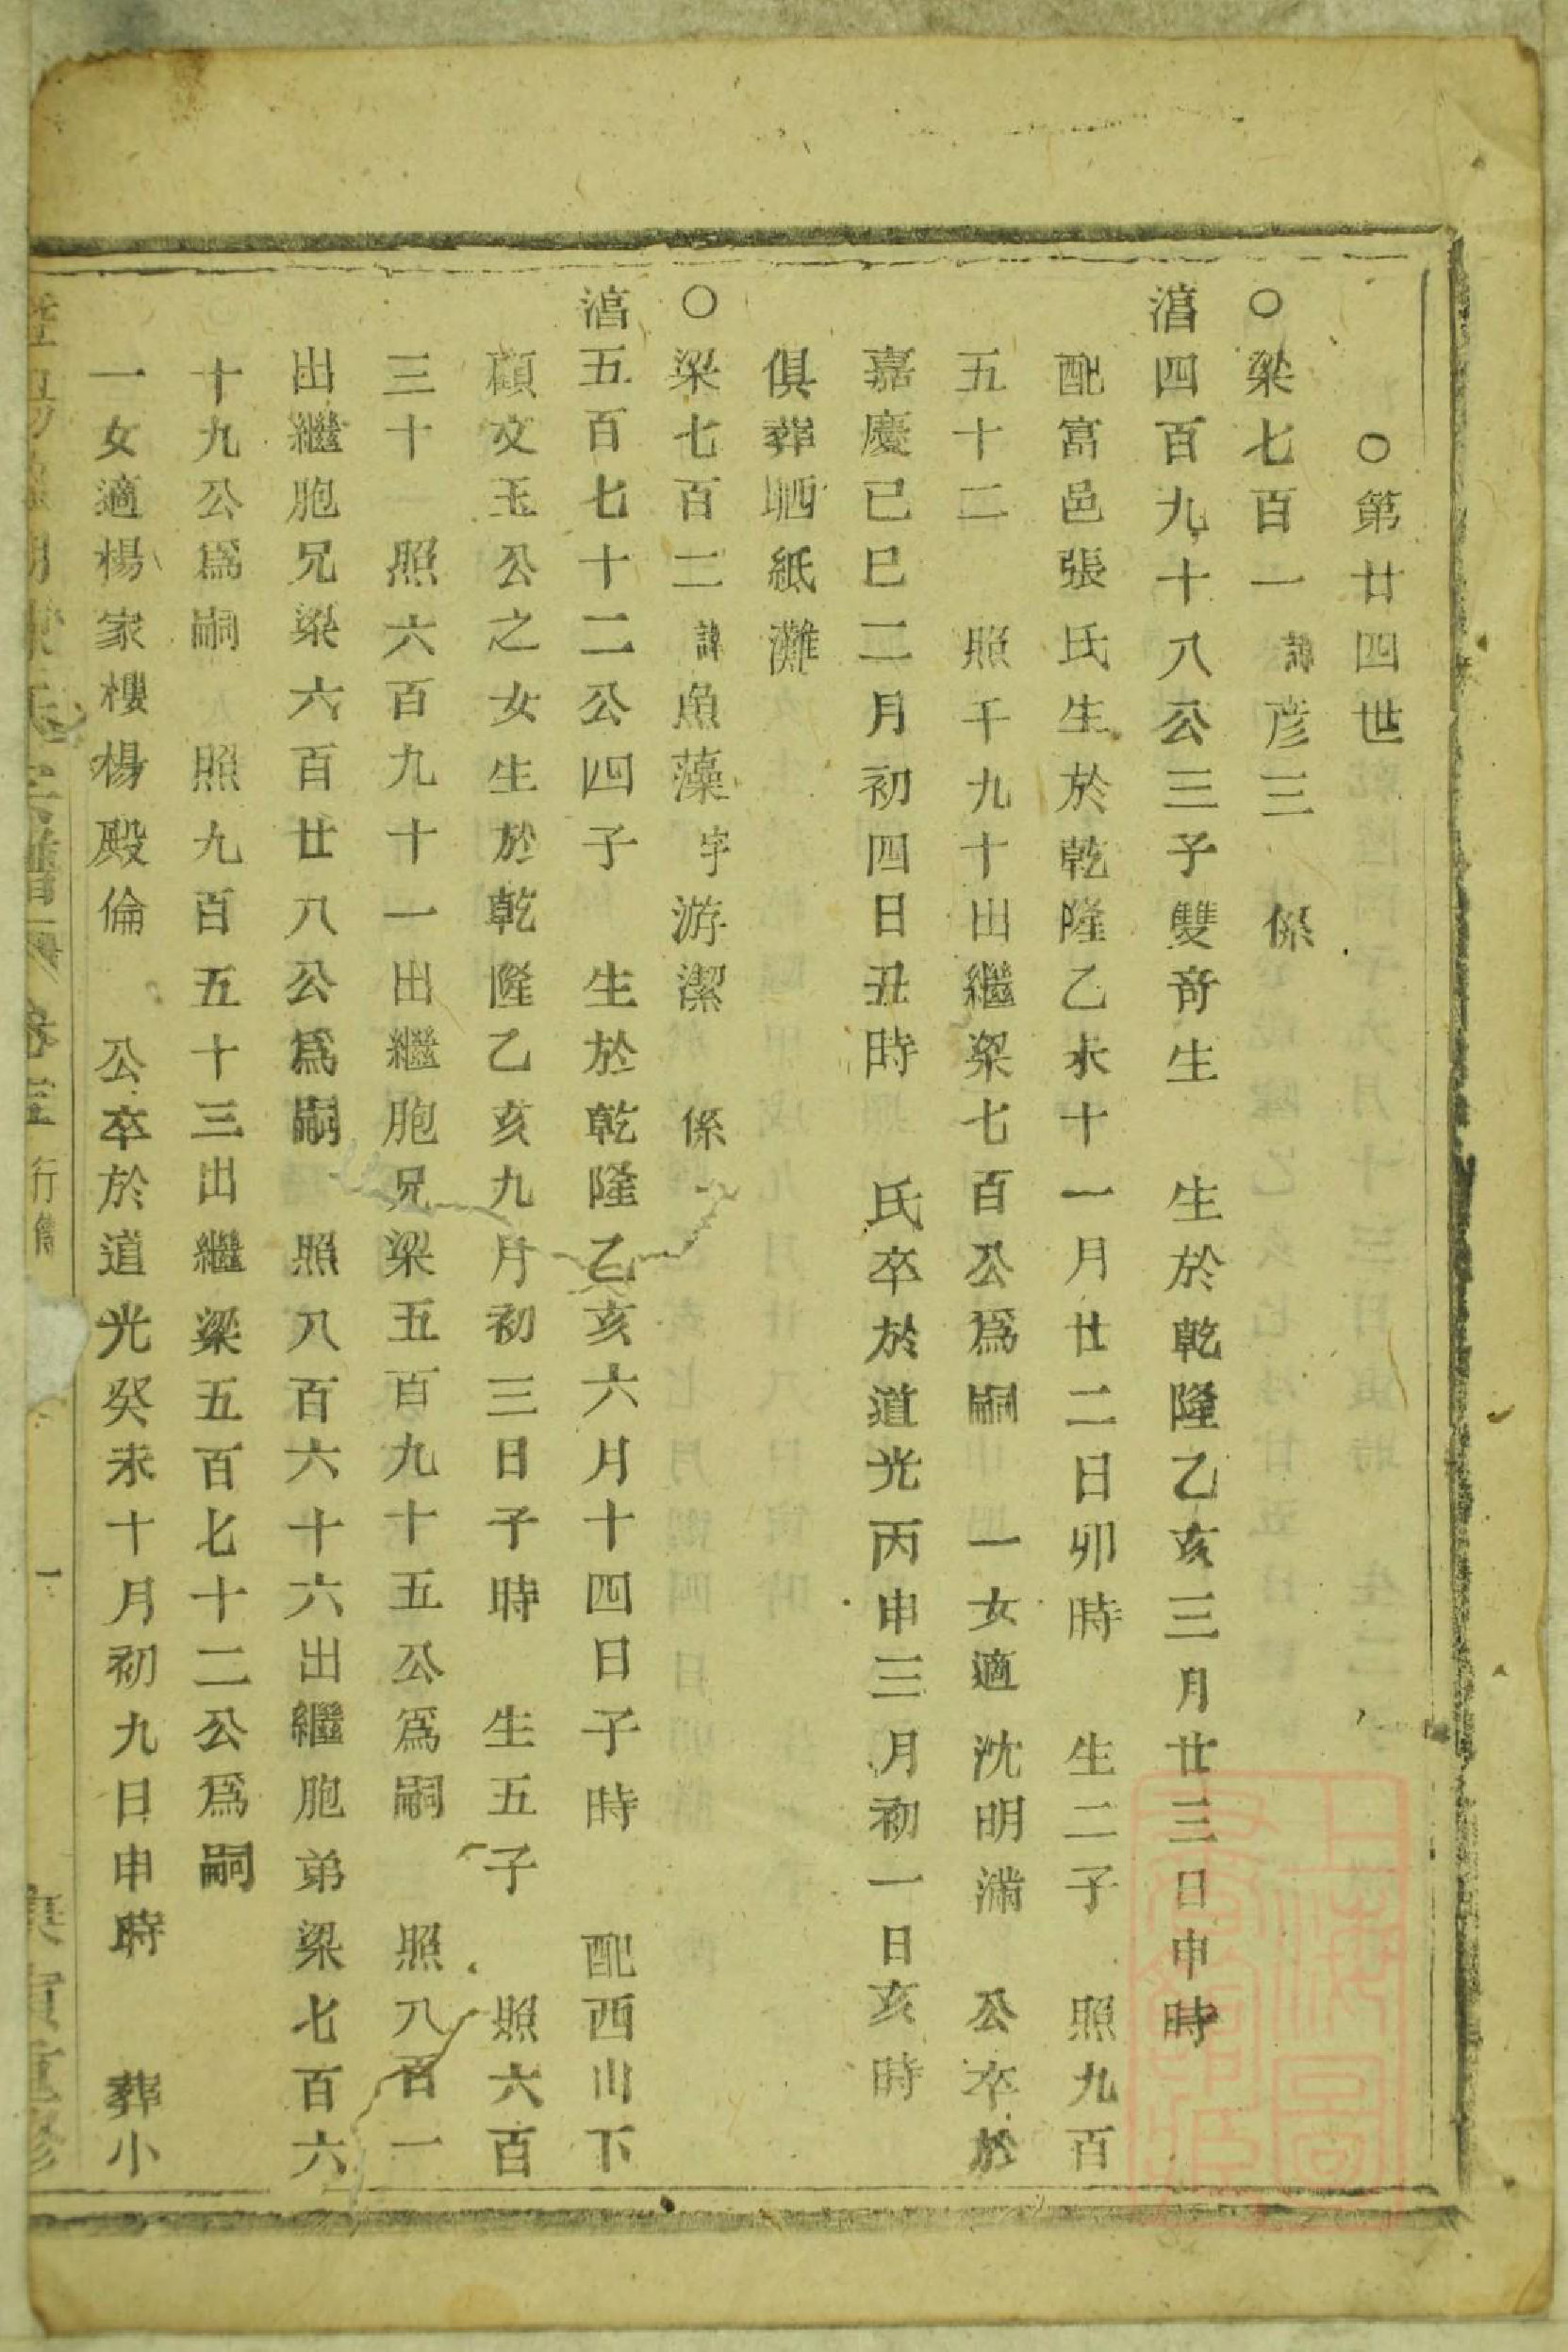 ○第廿四世
○梁七百一諱彦三 係
㵆四百九十八公三子雙竒生 生於乾隆乙亥三月廿三日申時
配富邑張氏生於乾隆乙未十一月廿二日卯時 生二子 照九百
五十二 照千九十出繼梁七百公爲嗣 一女適沈明滿 公卒於
嘉慶己巳二月初四日丑時 氏卒於道光丙申三月初一日亥時
俱葬晒紙灘
○梁七百二諱魚藻字游潔 係
㵆五百七十二公四子 生於乾隆乙亥六月十四日子時 配西山下
顧文玉公之女生於乾隆乙亥九月初三日子時 生五子 照六百
三十 照六百九十一出繼胞兄梁五百九十五公爲嗣 照八百一
出繼胞兄梁六百廿八公爲嗣 照八百六十六出繼胞弟梁七百六
十九公爲嗣 照九百五十三出繼梁五百七十二公爲嗣
一女適楊家樓楊殿倫 公卒於道光癸未十月初九日申時 葬小
行傳
上海圖書館藏